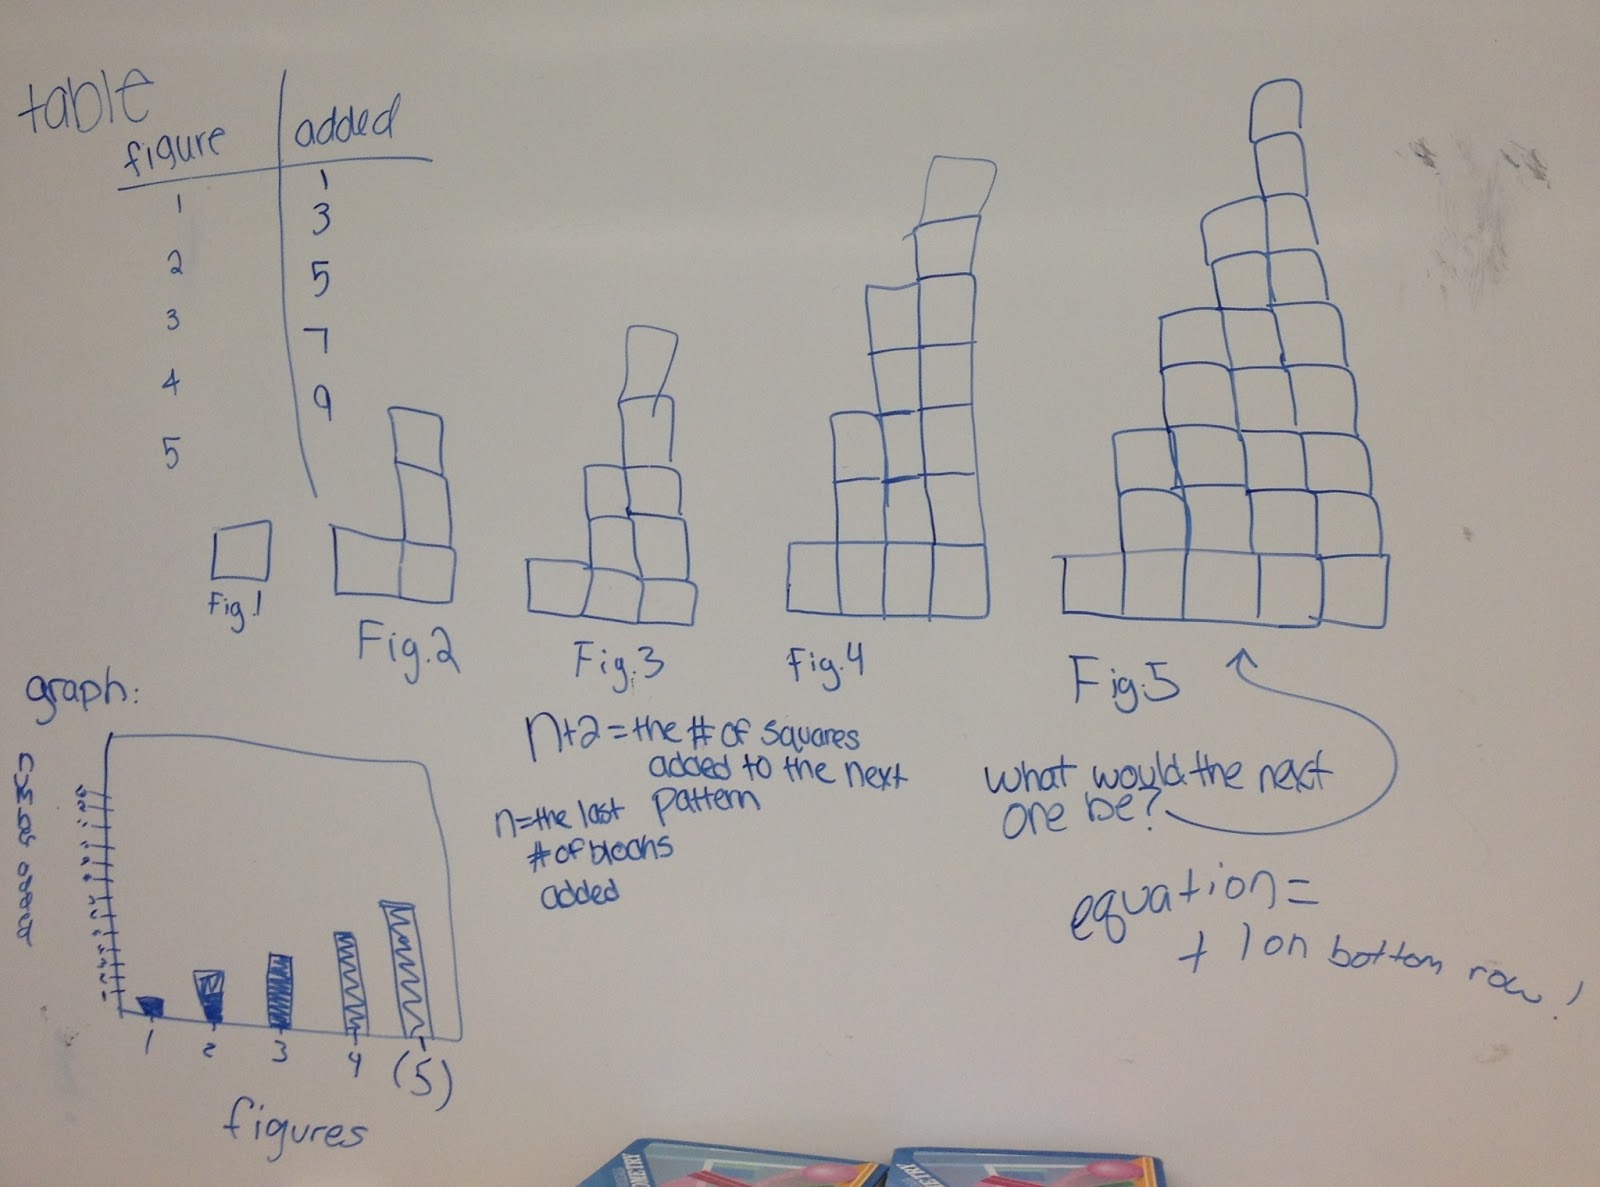 table
figure added
1 1
2 3
3 5
4 7
5 9
Fig.1
Fig.2
Fig.3
Fig.4
Fig.5
graph:
1 2 3 4 (5)
figures
n+2=the # of squares
added to the next
pattern
n=the last
# of blocks
added
what would the next
one be?
equation=
+ 1 on bottom row!